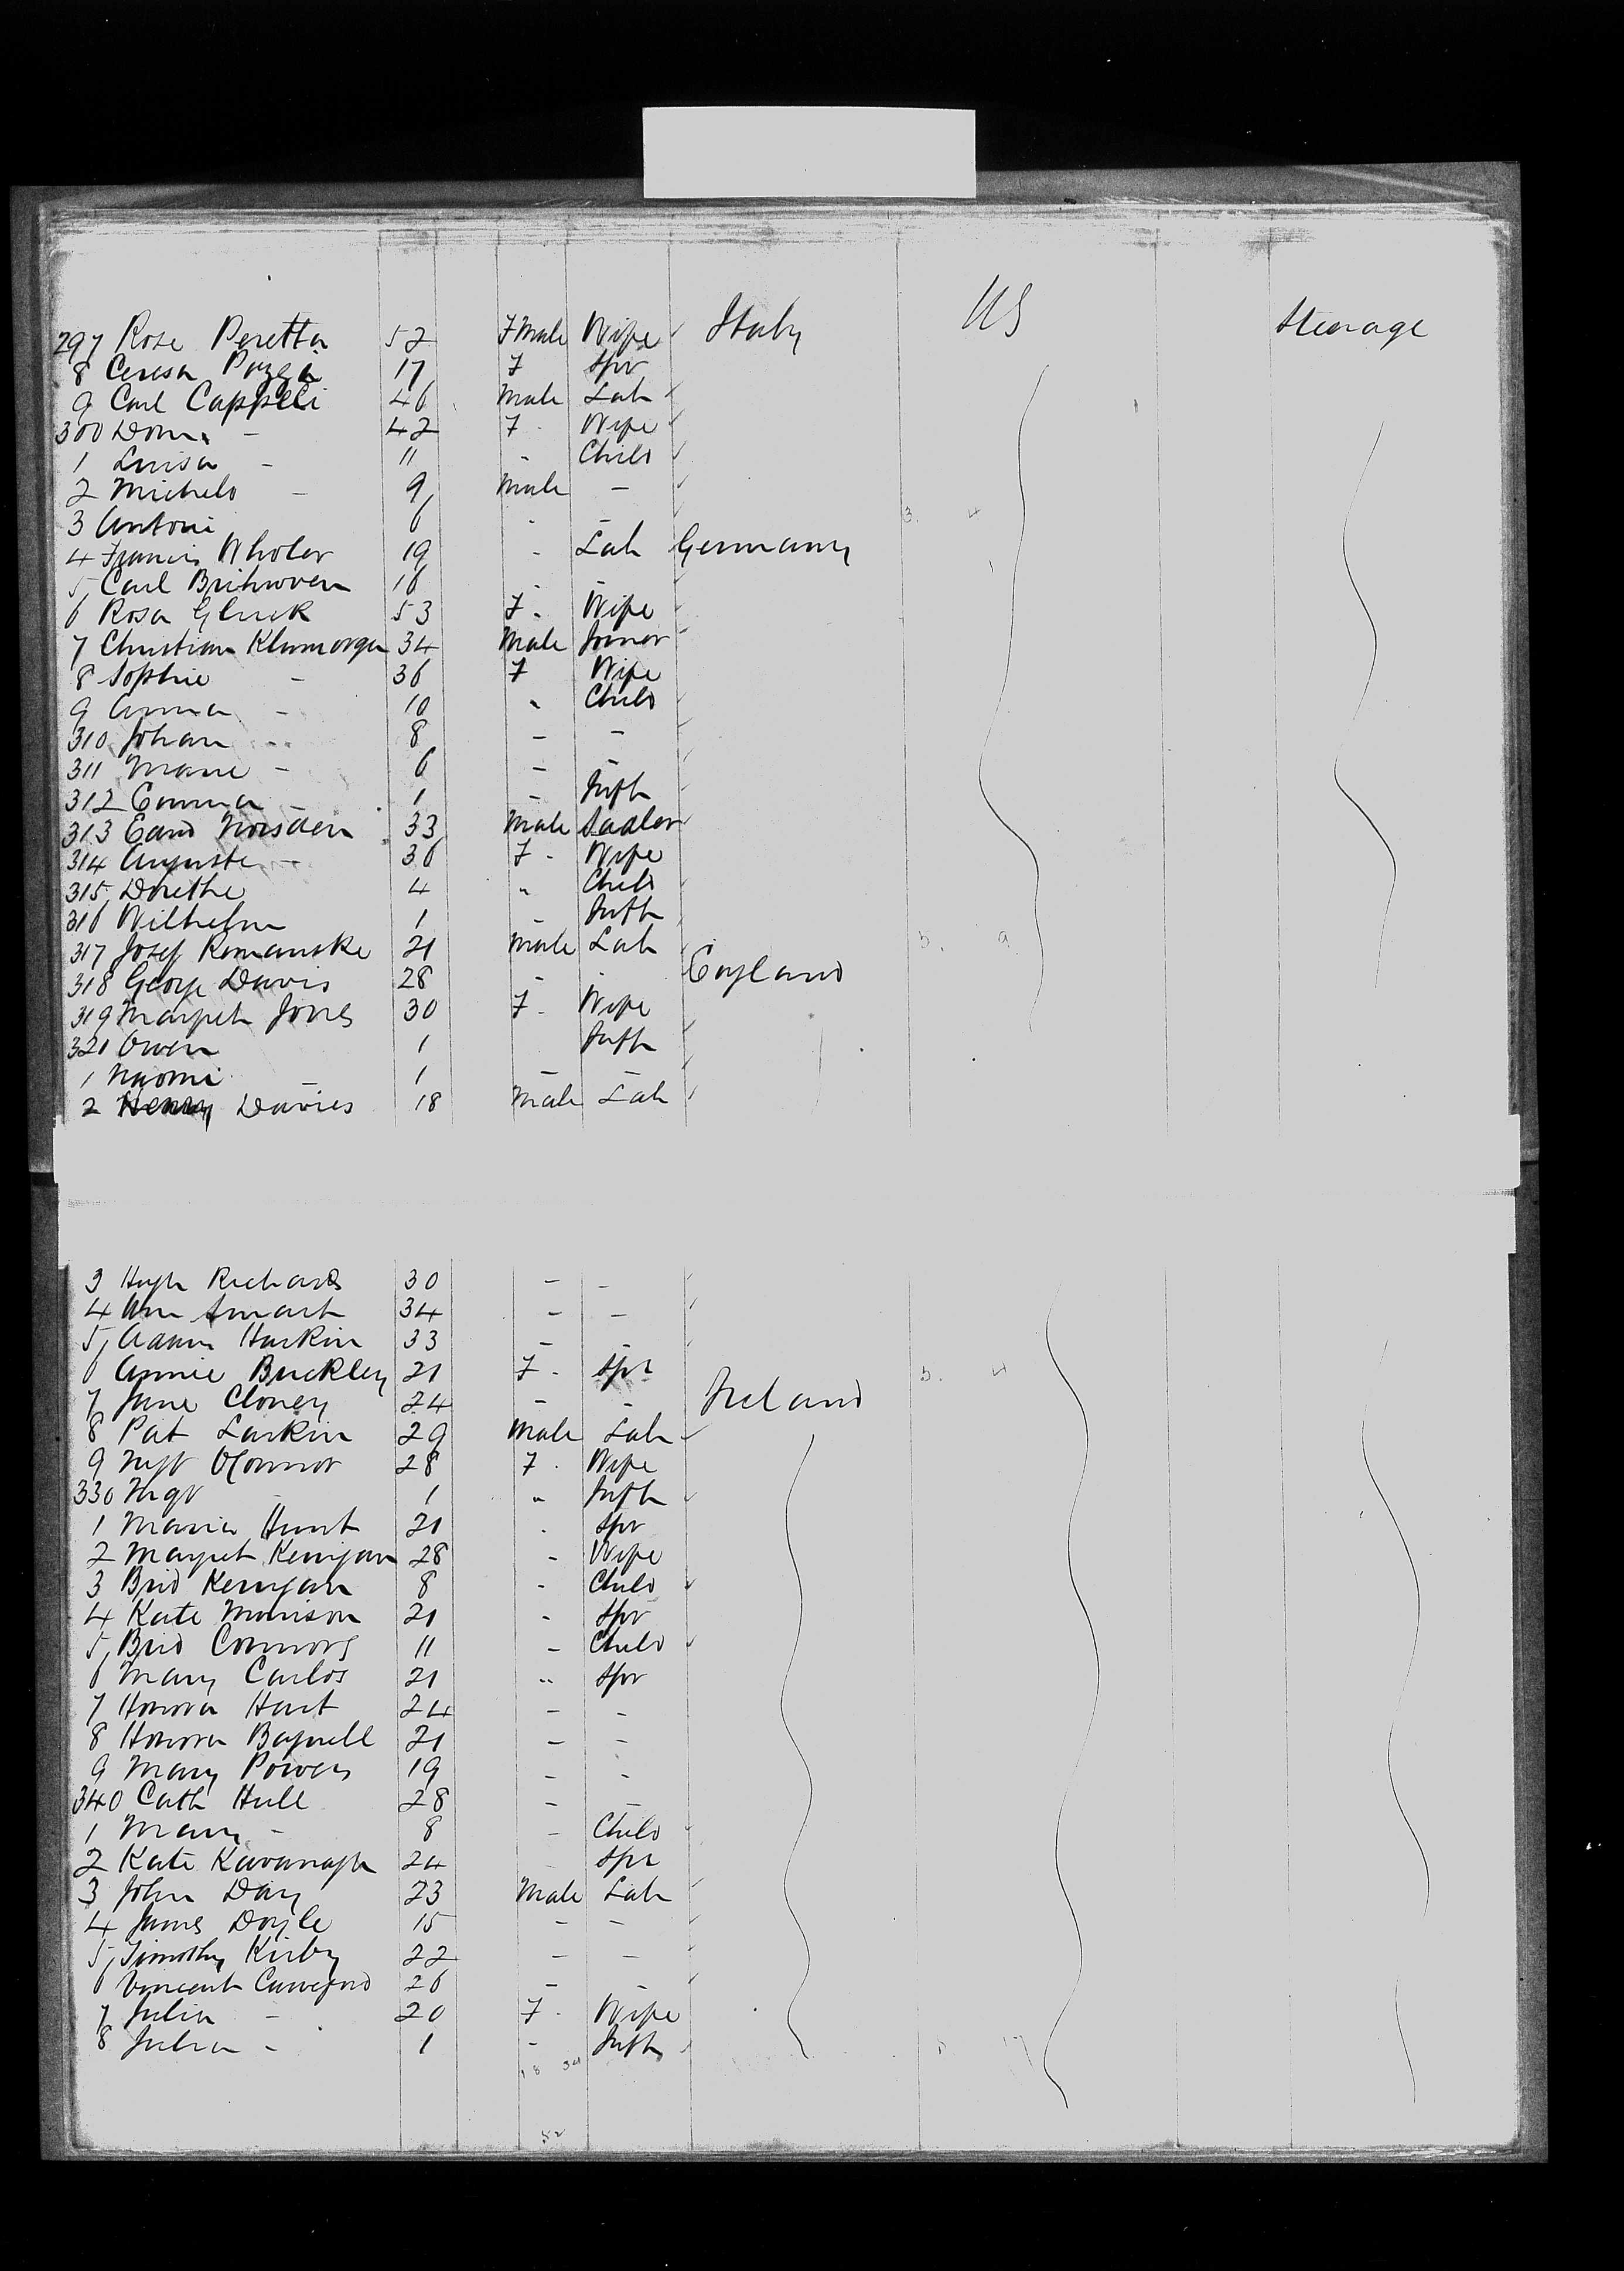 297 Rose Peretta 52 Fmale Wife Italy US Steerage
8 Ceresa Pozza 17 F Spr
9 Carl Cappeli 46 Male Lab
300 Dom. - 42 F. Wife
1 Luisa - 11 - Child
2 Michelo - 9 Male -
3 Antoni 6 - -
4 Francis Wholer 19 - Lab Germany
5 Carl 16 - -
6 Rosa Gluck 53 F. Wife
7 Christian Klumorgen 34 Male Joiner
8 Sophie - 36 F Wife
9 Anna - 10 " Child
310 Johan - 8 - -
311 Marie - 6 - -
312 Emma - 1 - Infh
313 Eard Norsden 33 Male Sadler
314 Auguste - 36 F. Wife
315 Dorethe 4 " Child
316 Wilhelm 1 - Infh
317 Josef Romanske 21 Male Lab
318 George Davis 28 - - England
319 Margret Jones 30 F. Wife
320 Owen 1 Infh
1 Naomi - 1 - -
2 Henry Davies 18 Male Lab
3 Hugh Richards 30 - -
4 Wm Smart 34 - -
5 Adam Harkin 33 - -
6 Annie Buckley 21 F. Spr
7 Jane Cloney 24 - - Ireland
8 Pat Larkin 29 Male Lab
9 Mgt OConnor 28 F. Wife
330 Mgt - 1 " Infh
1 Maria Hunt 21 - Spr
2 Margret Kerrigan 28 - Wife
3 Brid Kerrigan 8 - Child
4 Kate Morrison 21 - Spr
5 Brid Connors 11 - Child
6 Mary Carlos 21 " Spr
7 Honora Hart 24 - -
8 Honora Bagnell 21 - -
9 Mary Powers 19 - -
340 Cath Hull 28 - -
1 Mary - 8 - Child
2 Kate Kavanagh 24 Spr
3 John Day 23 Male Lab
4 James Doyle 15 - -
5 Timothy Kirby 22 - -
6 Vincent 26 - -
7 Julia - 20 F. Wife
8 Julia - 1 - Infh
52